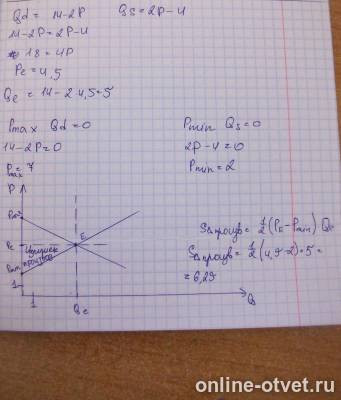 Qd = 14-2P    Qs = 2P-4
14-2P=2P-4
18=4P
Pe = 4,5
Qe = 14-2·4,5=5
Pmax Qd=0    Pmin Qs=0
14-2P=0    2P-4=0
Pmax=7    Pmin=2
P
E
Pe
Излишек
произв
1
1
Qe
Q
S△произв = 1/2 (PE-Pmin) Qe
S△произв = 1/2 (4,5-2)·5=
=6,25
online-otvet.ru